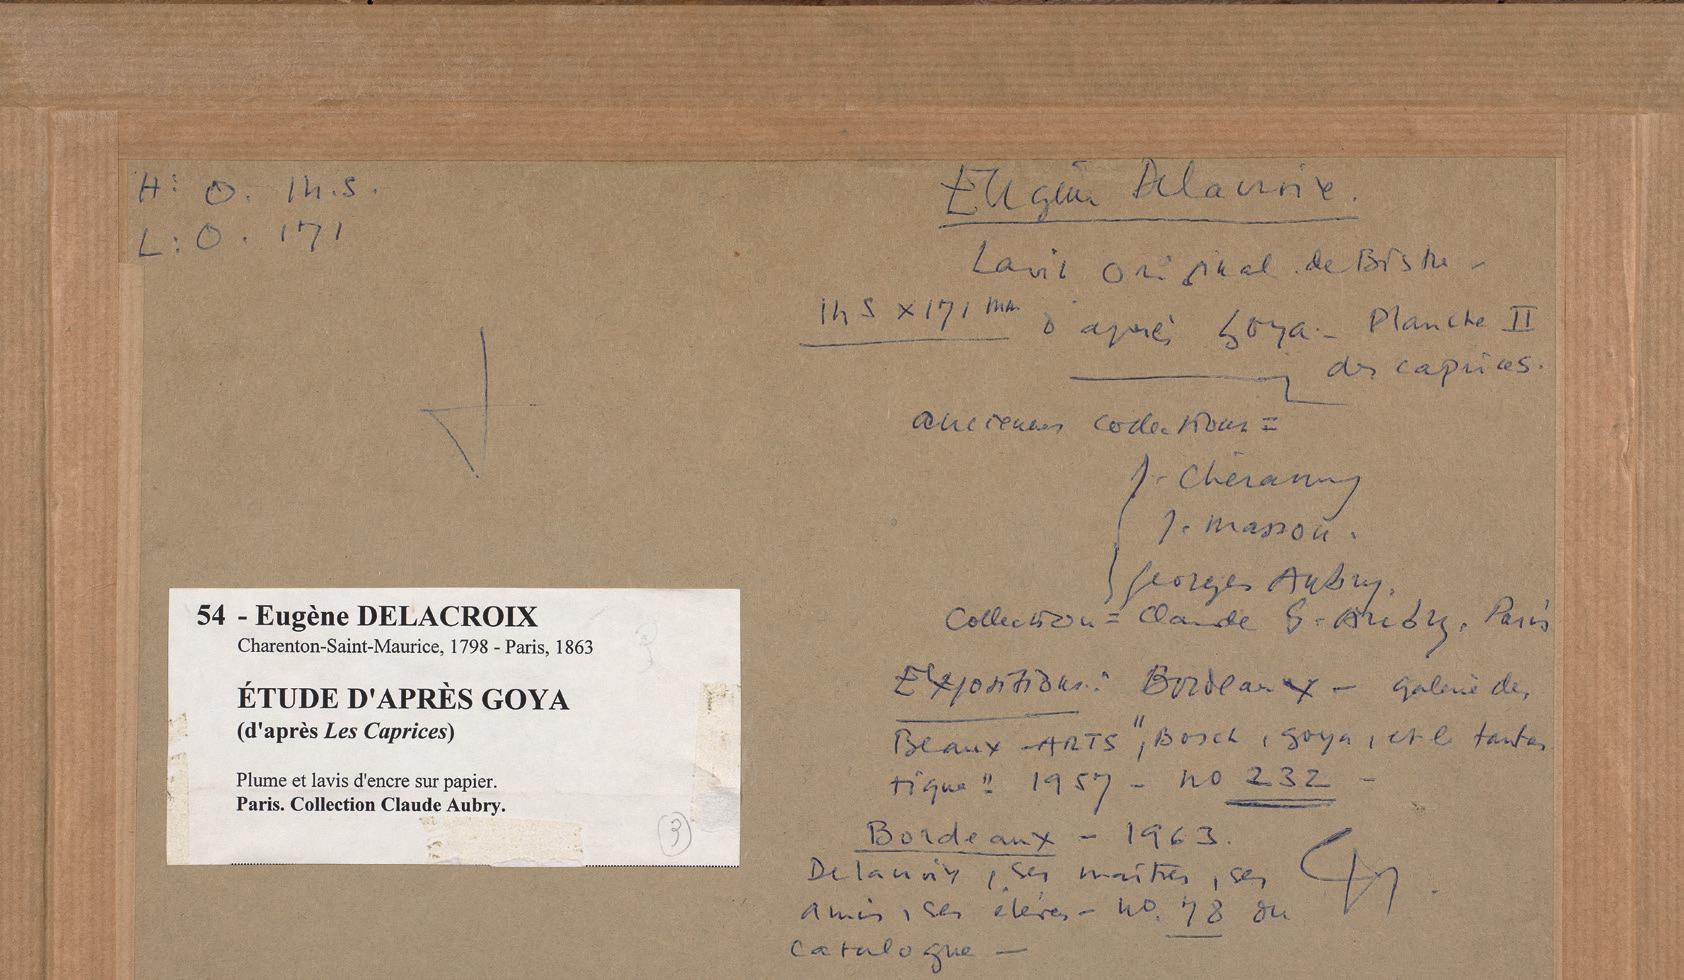 H: 0. 145.
L: 0. 171
Eugène Delacroix.
Lavis original de Bistre -
145 x 171 mm d'après Goya - Planche II
des caprices.
anciennes collections =
J. Chéramy
J. Masson.
Georges Aubry.
Collection = Claude G. Aubry. Paris
Expositions : Bordeaux - galerie des
Beaux-ARTS "Bosch, Goya, et le fantas
tique" 1957 - no 232 -
Bordeaux - 1963.
Delacroix, ses maîtres, ses
amis, ses élèves - no. 78 du
catalogue -
54 - Eugène DELACROIX
Charenton-Saint-Maurice, 1798 - Paris, 1863
ÉTUDE D'APRÈS GOYA
(d'après Les Caprices)
Plume et lavis d'encre sur papier.
Paris. Collection Claude Aubry.
3